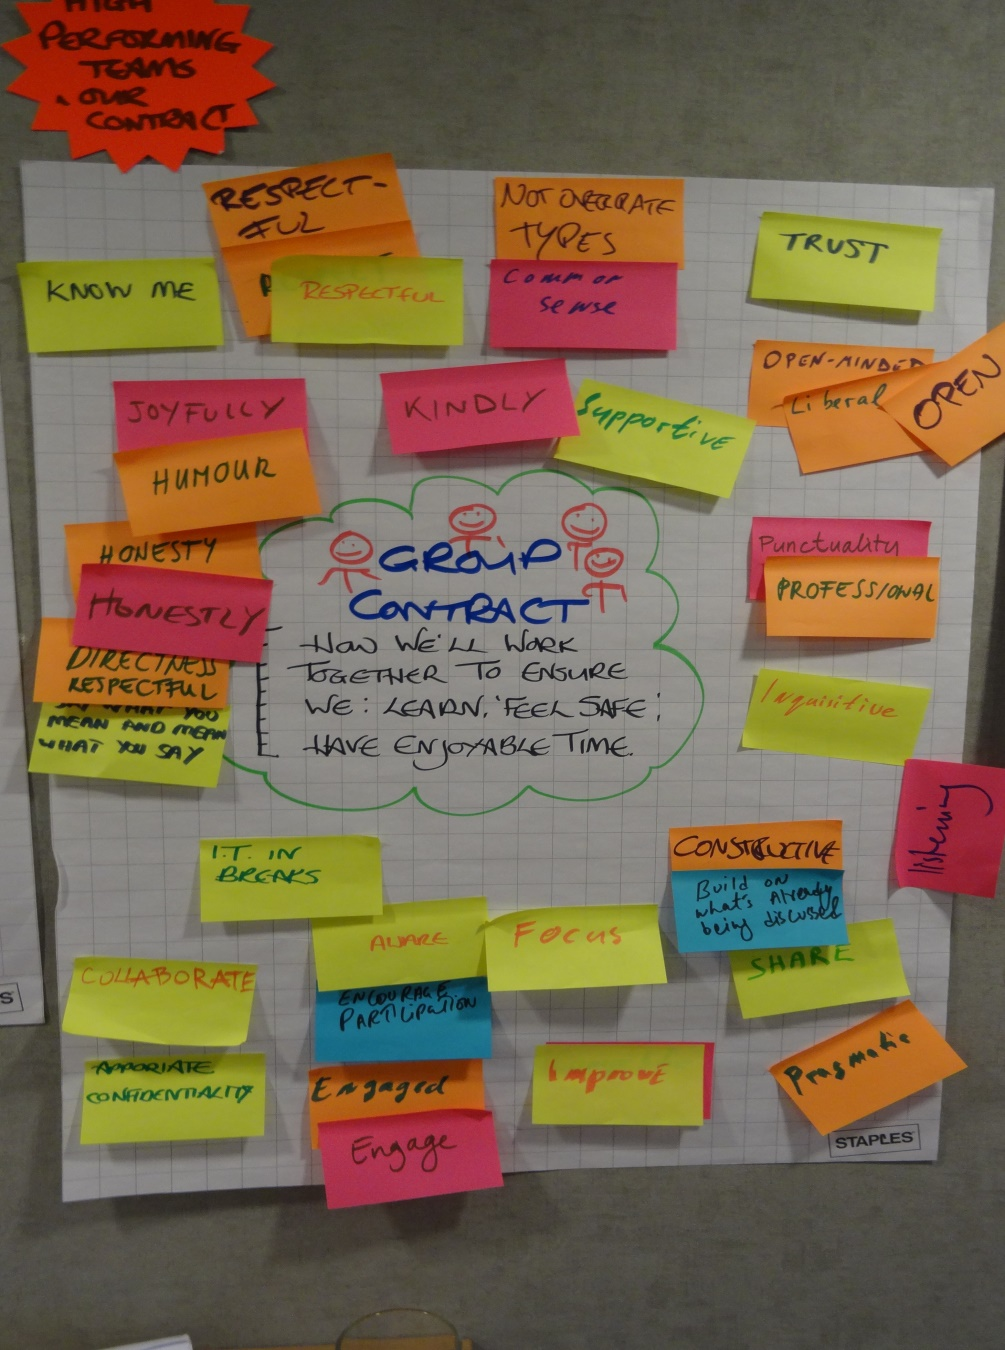 HIGH
PERFORMING
TEAMS
. OUR
CONTRACT
RESPECT-
FUL
RESPECTFUL
NOT OBERRATE
TYPES
Common
Sense
TRUST
KNOW ME
OPEN-MINDED
Liberal
OPEN
JOYFULLY
KINDLY
Supportive
HUMOUR
HONESTY
HONESTLY
DIRECTNESS
RESPECTFUL
SAY WHAT YOU
MEAN AND MEAN
WHAT YOU SAY
GROUP
CONTRACT
HOW WE'LL WORK
TOGETHER TO ENSURE
WE: LEARN, 'FEEL SAFE'
HAVE ENJOYABLE TIME.
Punctuality
PROFESSIONAL
Inquisitive
listening
I.T. IN
BREAKS
CONSTRUCTIVE
Build on
what's Already
being discussed
AWARE
FOCUS
SHARE
COLLABORATE
ENCOURAGE
PARTICIPATION
APPORIATE
CONFIDENTIALITY
Engaged
Engage
ImprovE
Pragmatic
STAPLES
S